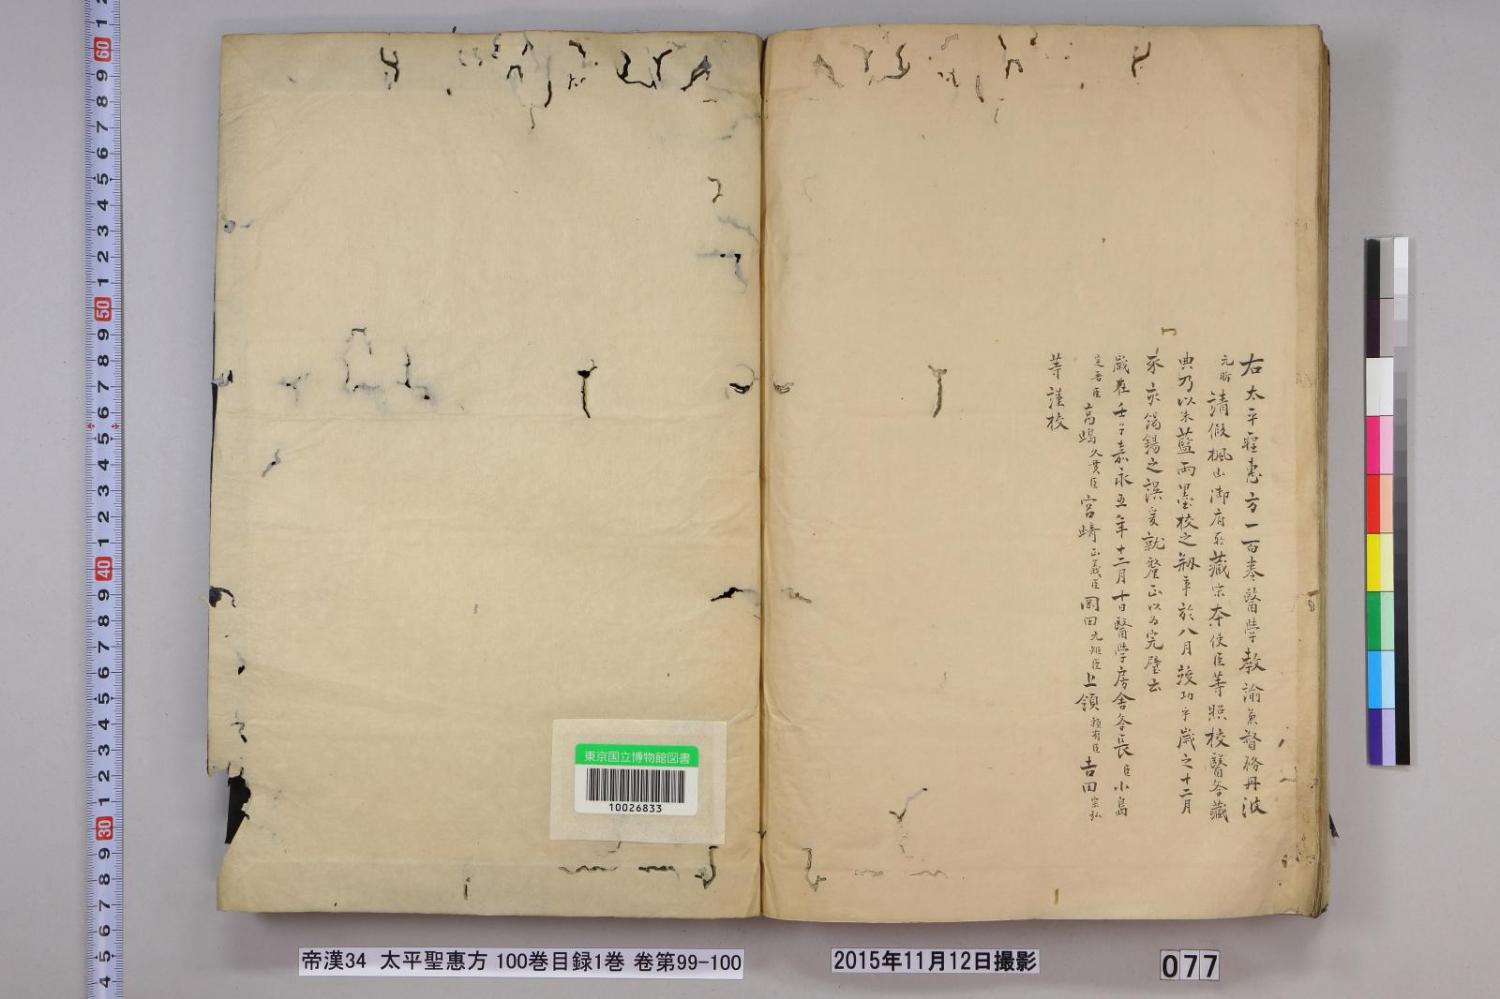 右太平聖惠方一百卷醫學教諭兼督務丹波
元昕請假楓山御府所藏宋本使臣等照校醫學藏
典乃以朱藍兩墨校之剏事於八月竣功乎歲之十二月
豕亥餳錫之誤爰就釐正以為完璧云
歲在壬子嘉永五年十二月十日醫學房舍長臣小島
臣高嶋久貫臣宮崎正義臣岡田九雄臣上領賴有臣吉田宗弘
等謹校
東京国立博物館図書
10026833
帝漢34 太平聖惠方 100巻目録1巻 巻第99-100
2015年11月12日撮影
077